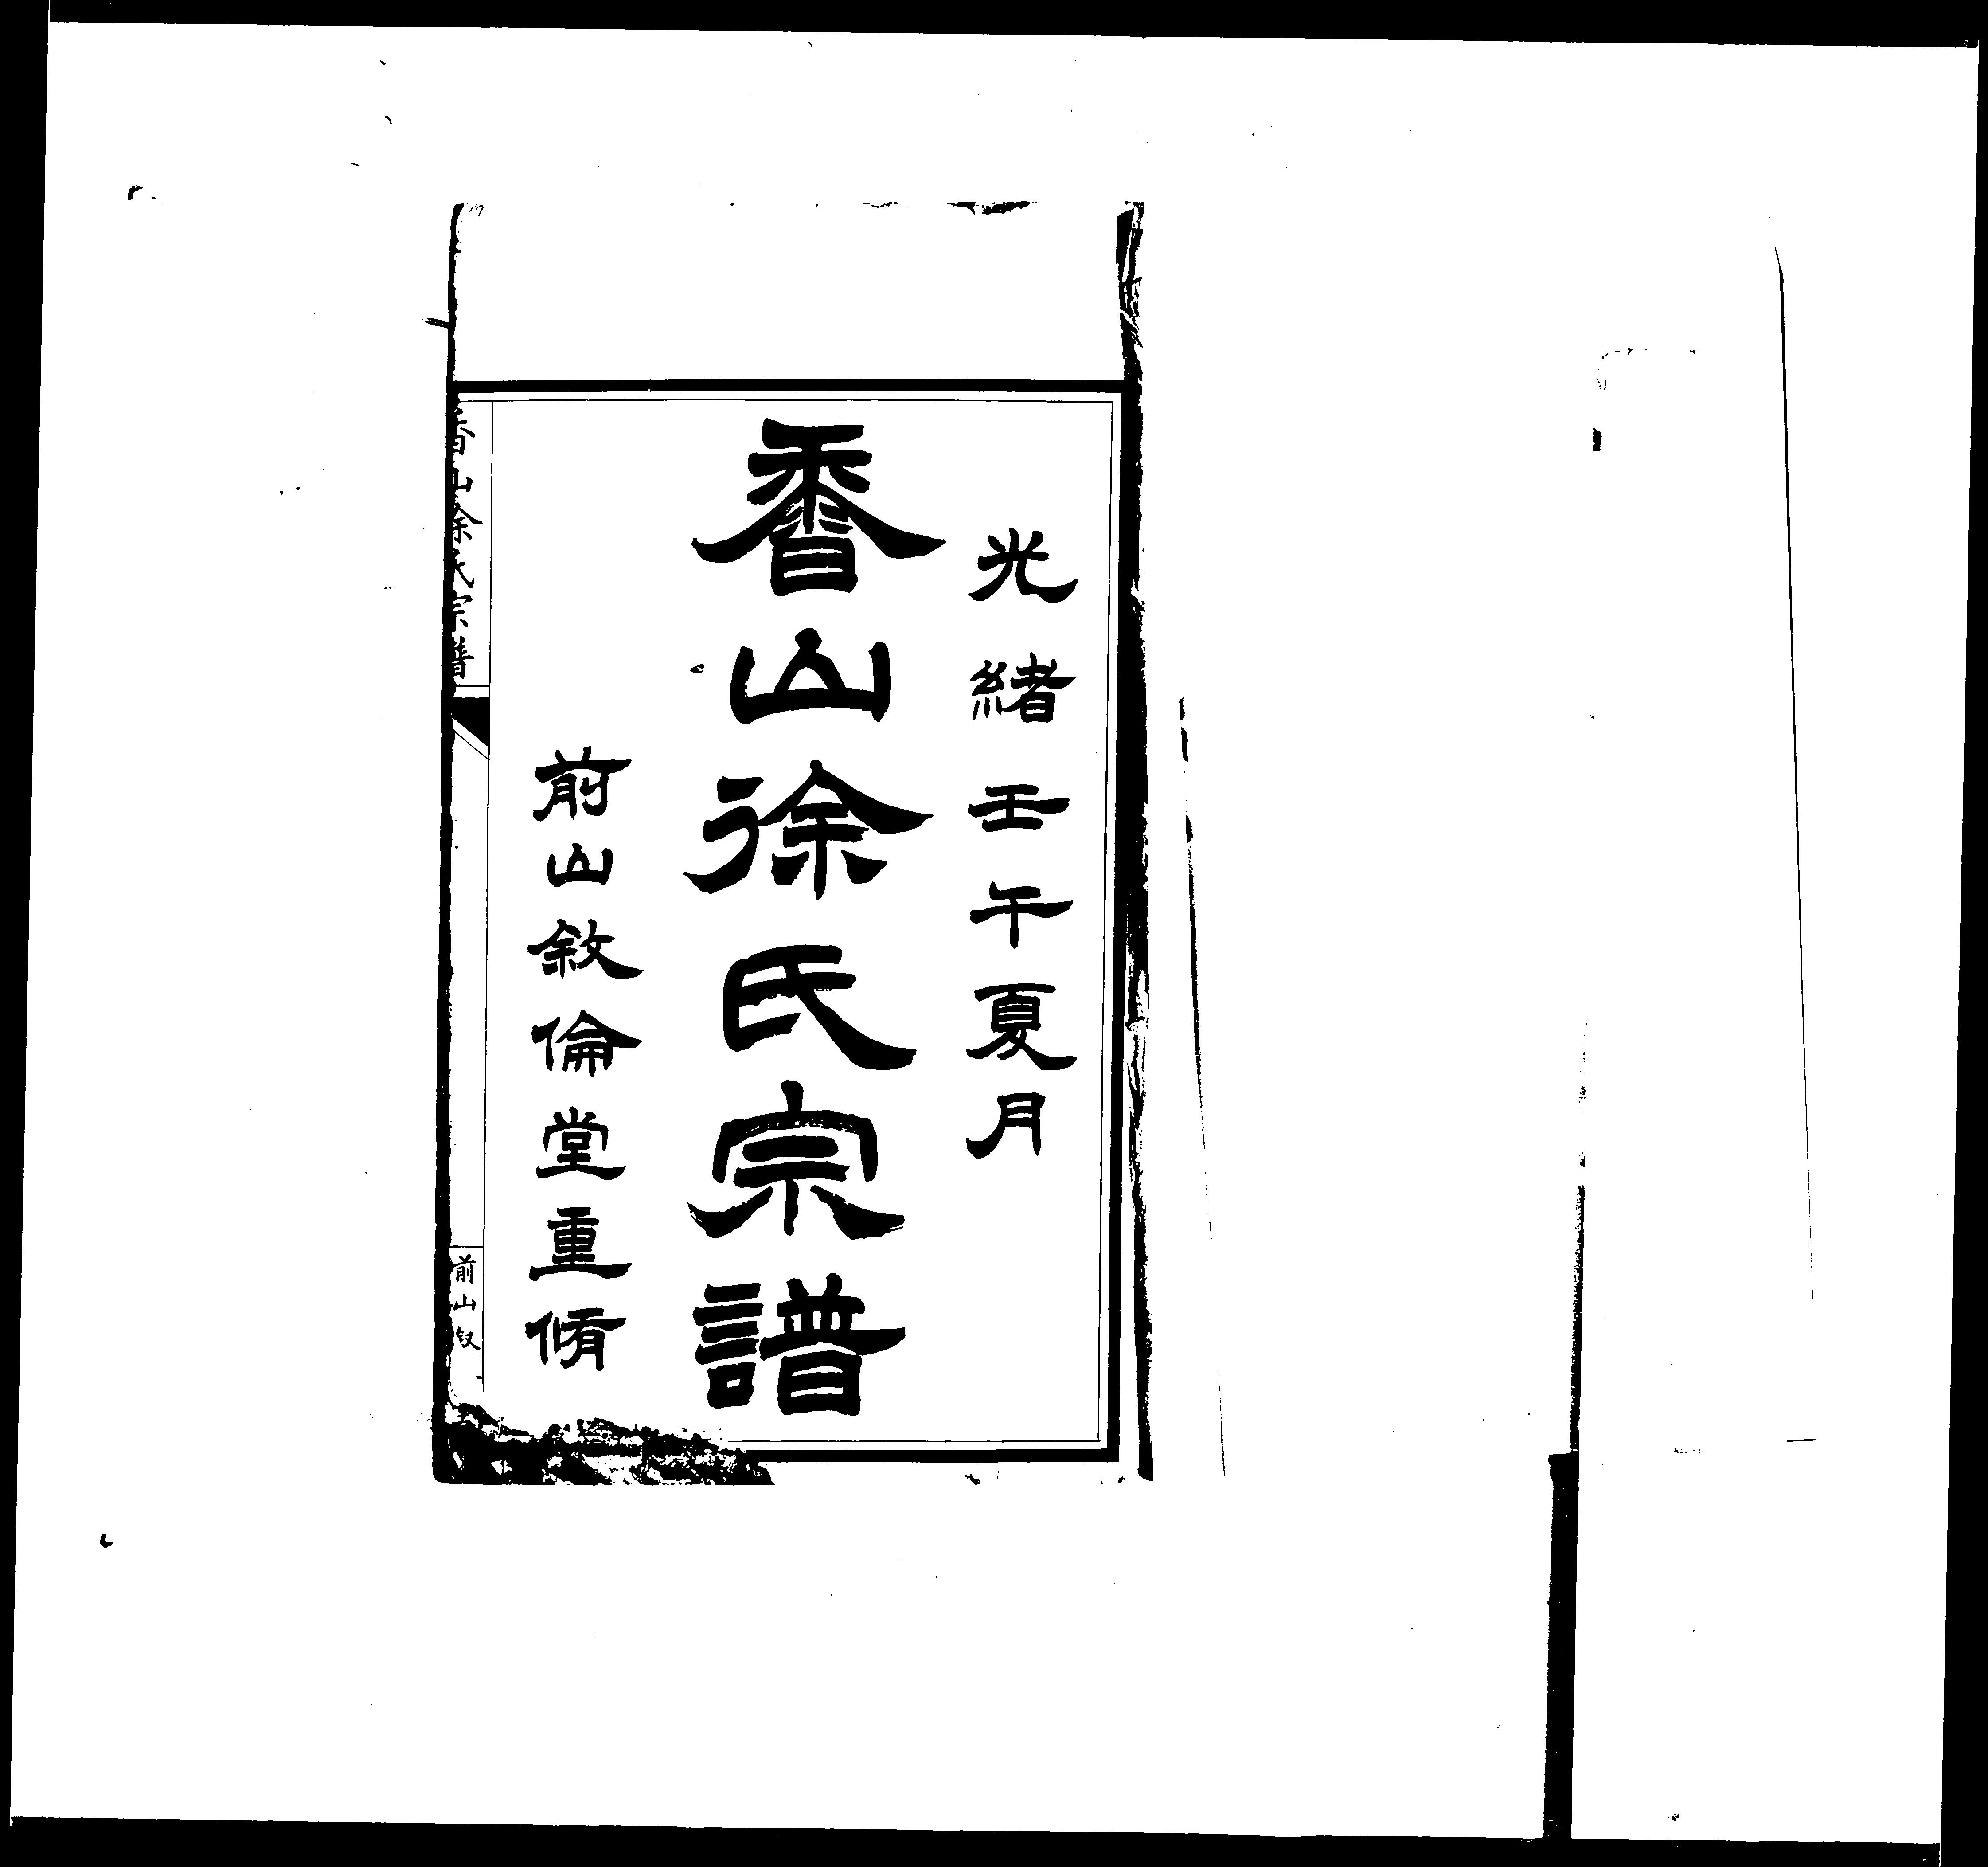 光緒壬午夏月
香山徐氏宗譜
前山敘倫堂重脩
香山徐氏宗譜
前山敘